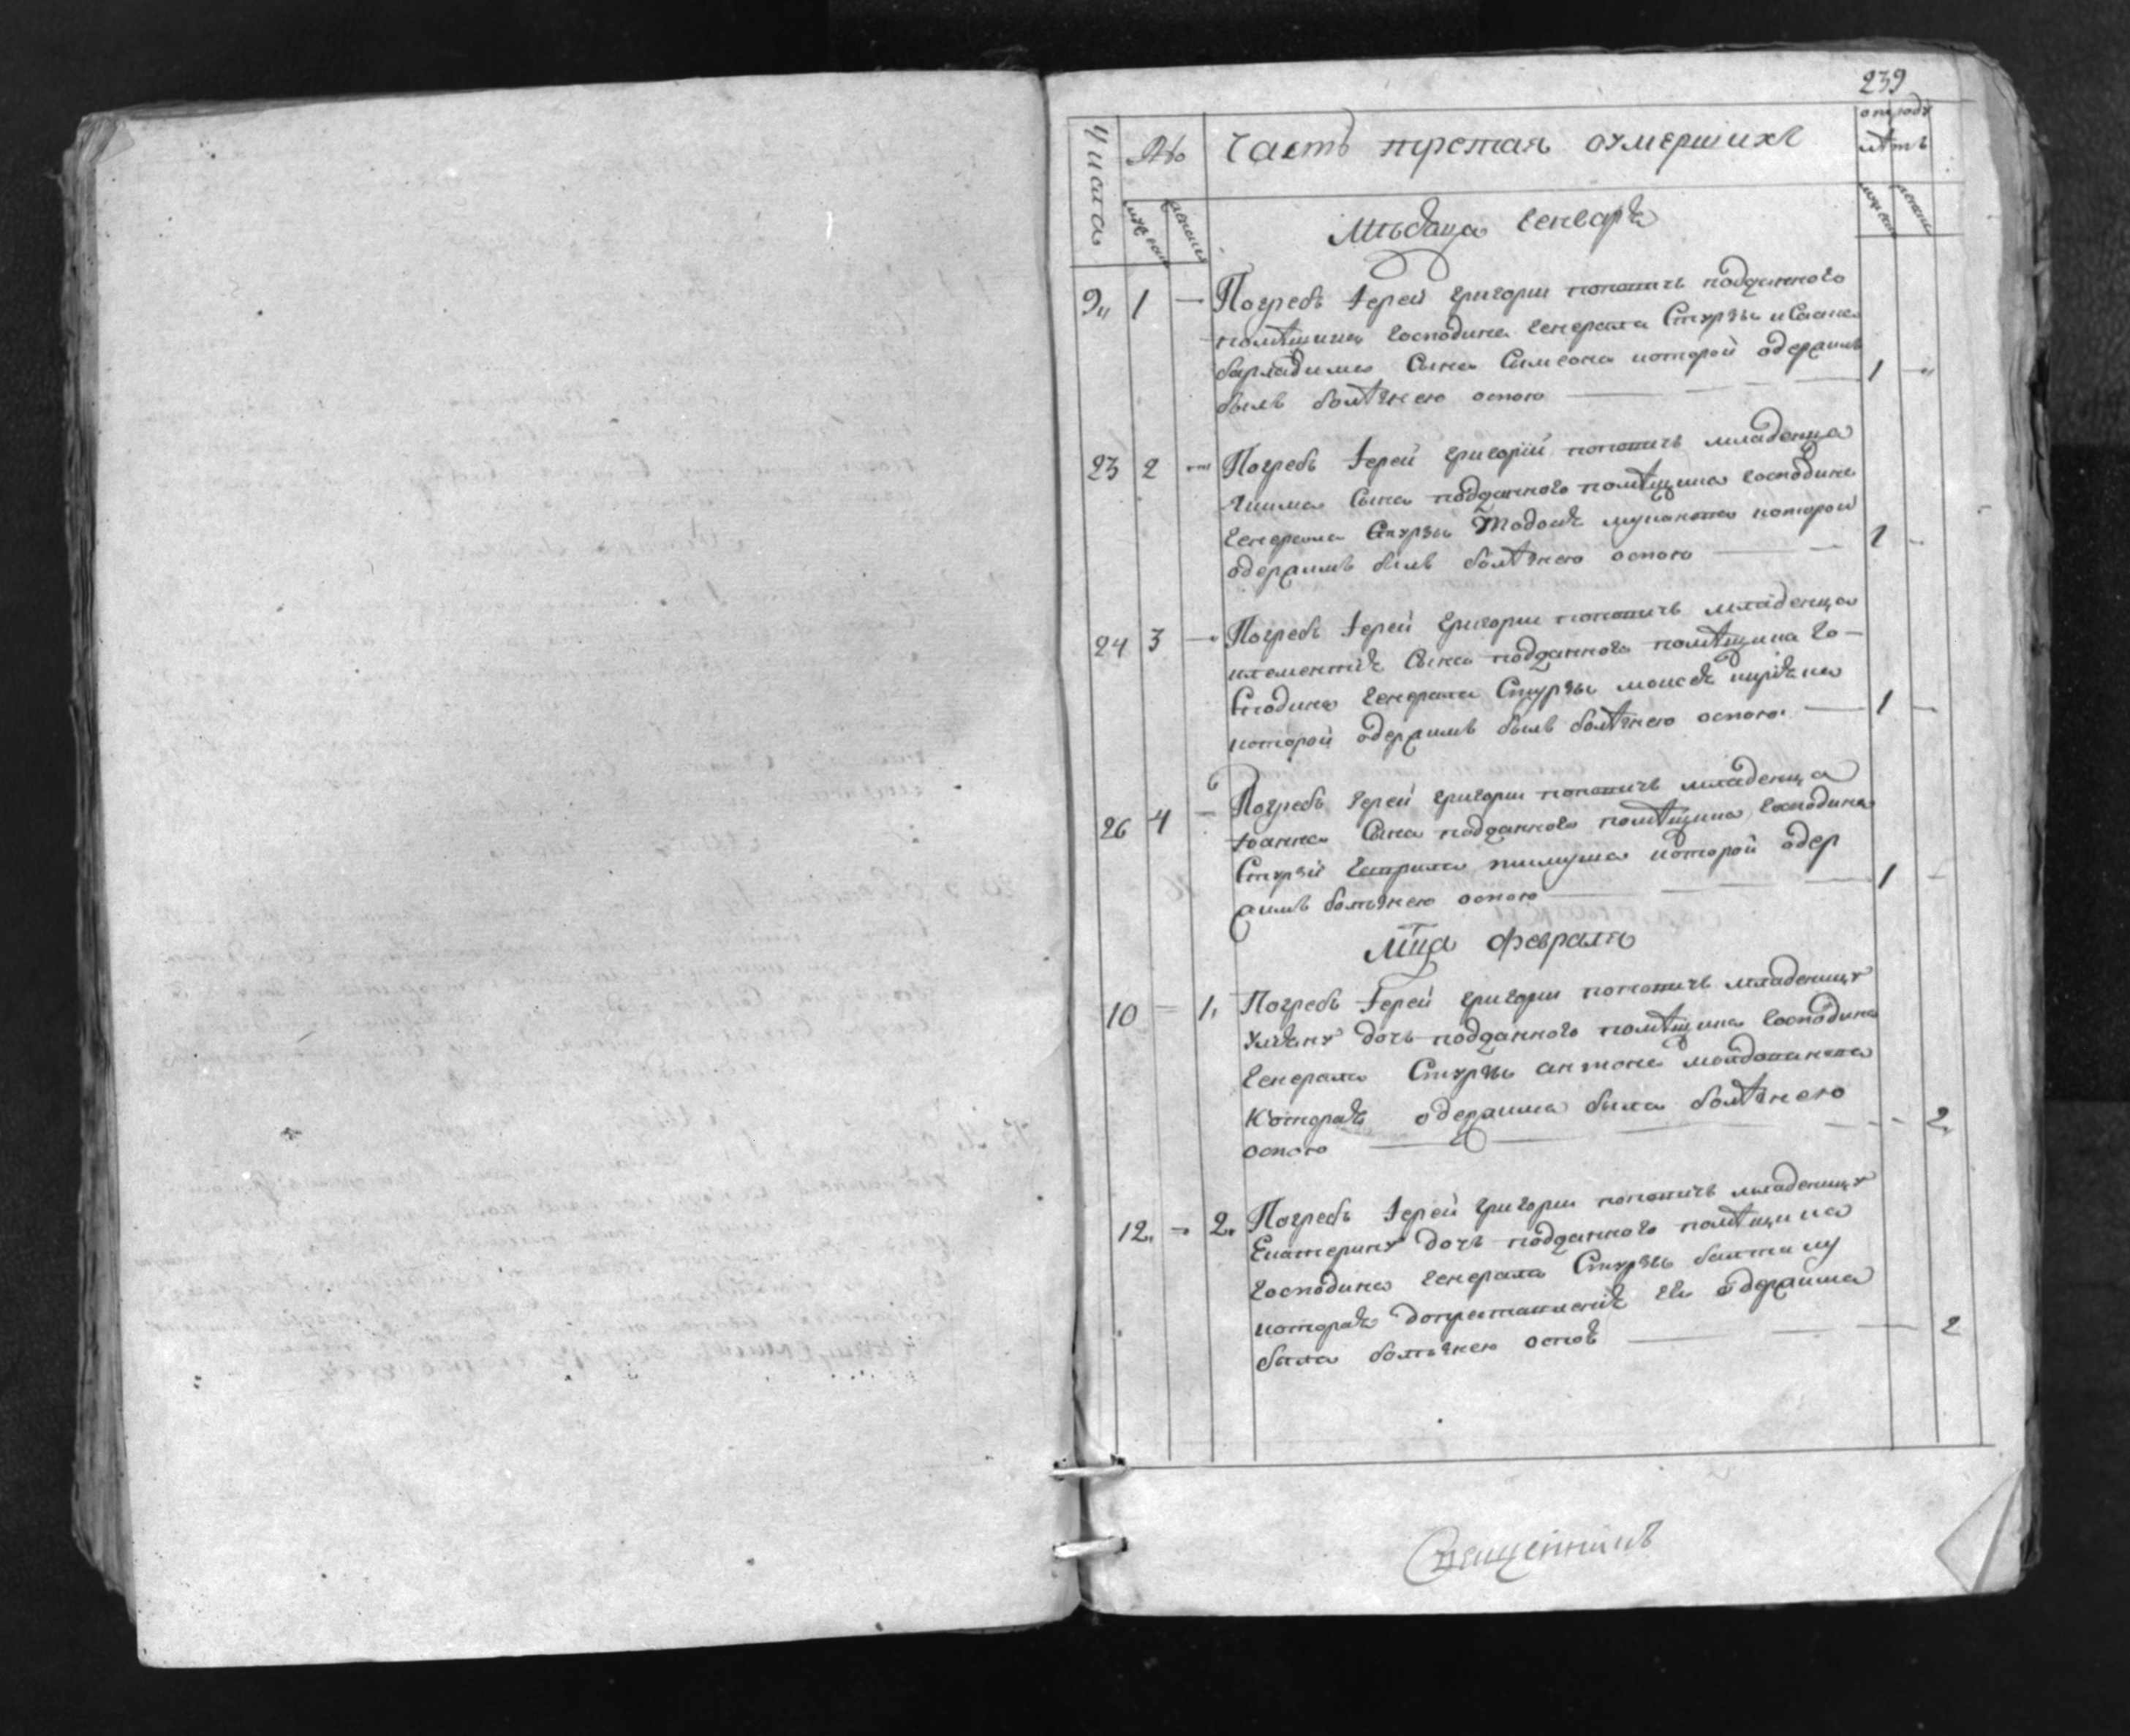 239
Числа
№
Часть третая оумершихъ
отроду
лѣтъ
мужеска
женска
мужеска
женска
Мѣсяца Генваря
9
1
Погребъ Іерей Григорий поповичъ подданного
помѣщика Господина Генерала Стурзы Исаака
сына Симеона которой одержимъ
былъ болѣзнею оспою
1
23
2
Погребъ Іерей Григорій поповичъ младенца
Якима сына подданного помѣщика Господина
Генерала Стурзы которой
одержимъ былъ болѣзнею оспою
1
24
3
Погребъ Іерей Григории поповичъ младенца
климентия сына подданного помѣщика Го-
сподина Генерала Стурзы моисея
которой одержимъ былъ болѣзнею оспою
1
26
4
Погребъ Іерей Григории поповичъ младенца
Іоанна сына подданного помѣщика Господина
Стурзы которой одер
жимъ болѣзнею оспою
1
Мца Февраля
10
1
Погребъ Іерей Григории поповичъ младеницу
Уляну дочь подданного помѣщика Господина
Генерала Стурзы антона
Которая одержима была болѣзнею
оспою
2
12
2
Погребъ Іерей Григории поповичъ младеницу
Екатерину дочь подданного помѣщика
Господина Генерала Стурзы
которая одержима
была болѣзнею
2
Священникъ